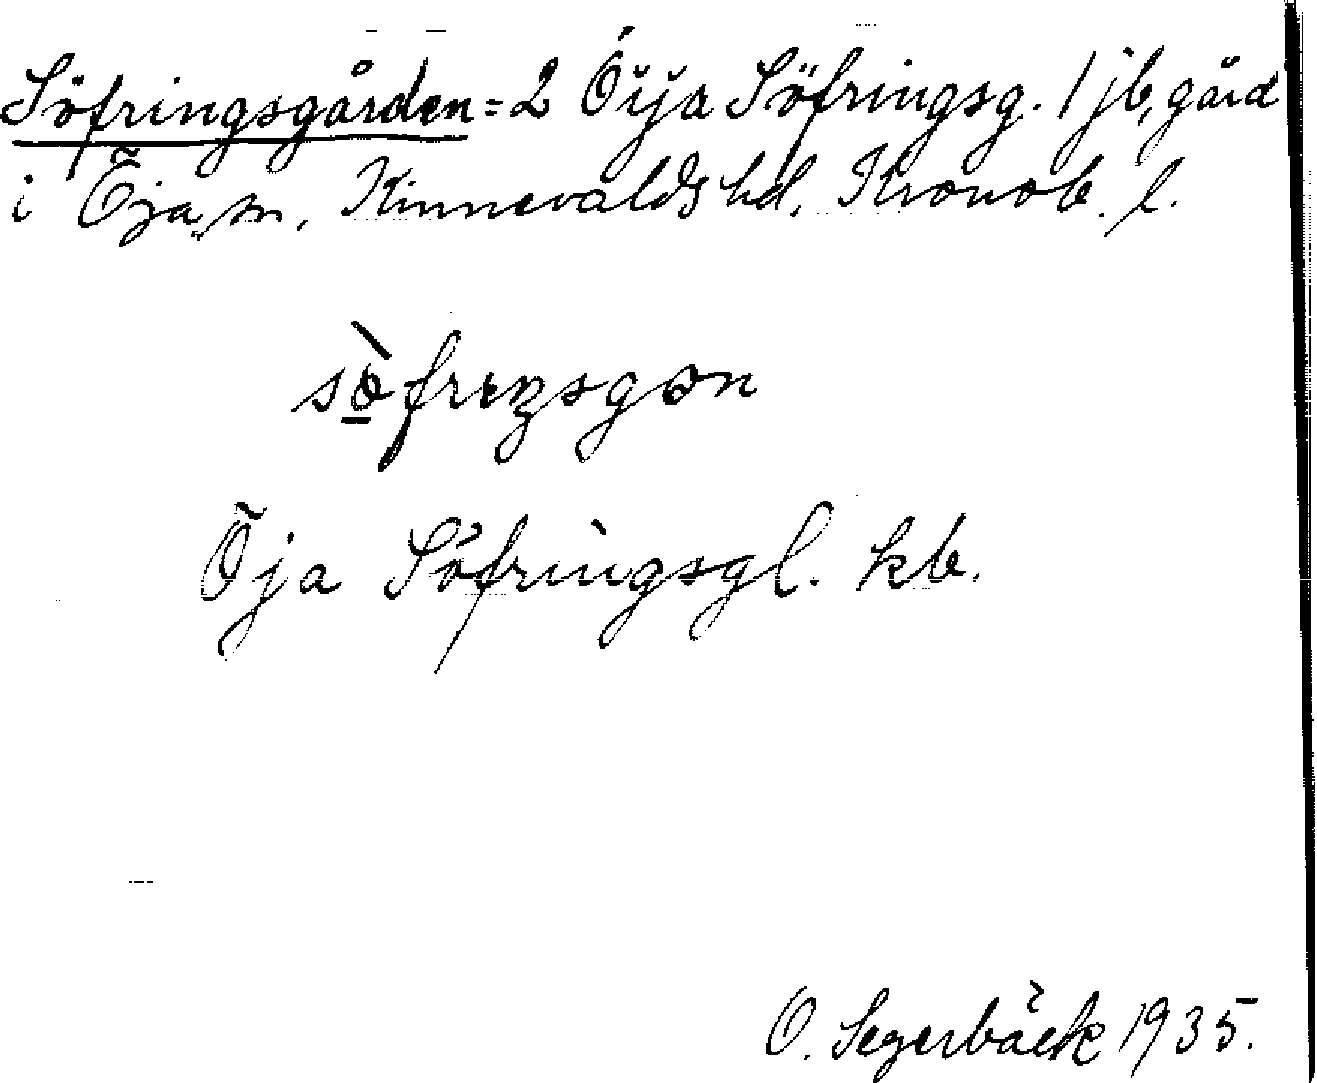 Söfringsgården = 2 Öija Söfringsg. 1 jb, gård
i Öja sn, Kinnevalds hd. Kronob. l.
sò̠freŋsgɔn
Öja Söfringsgl. kb.
O. Segerbäck 1935.